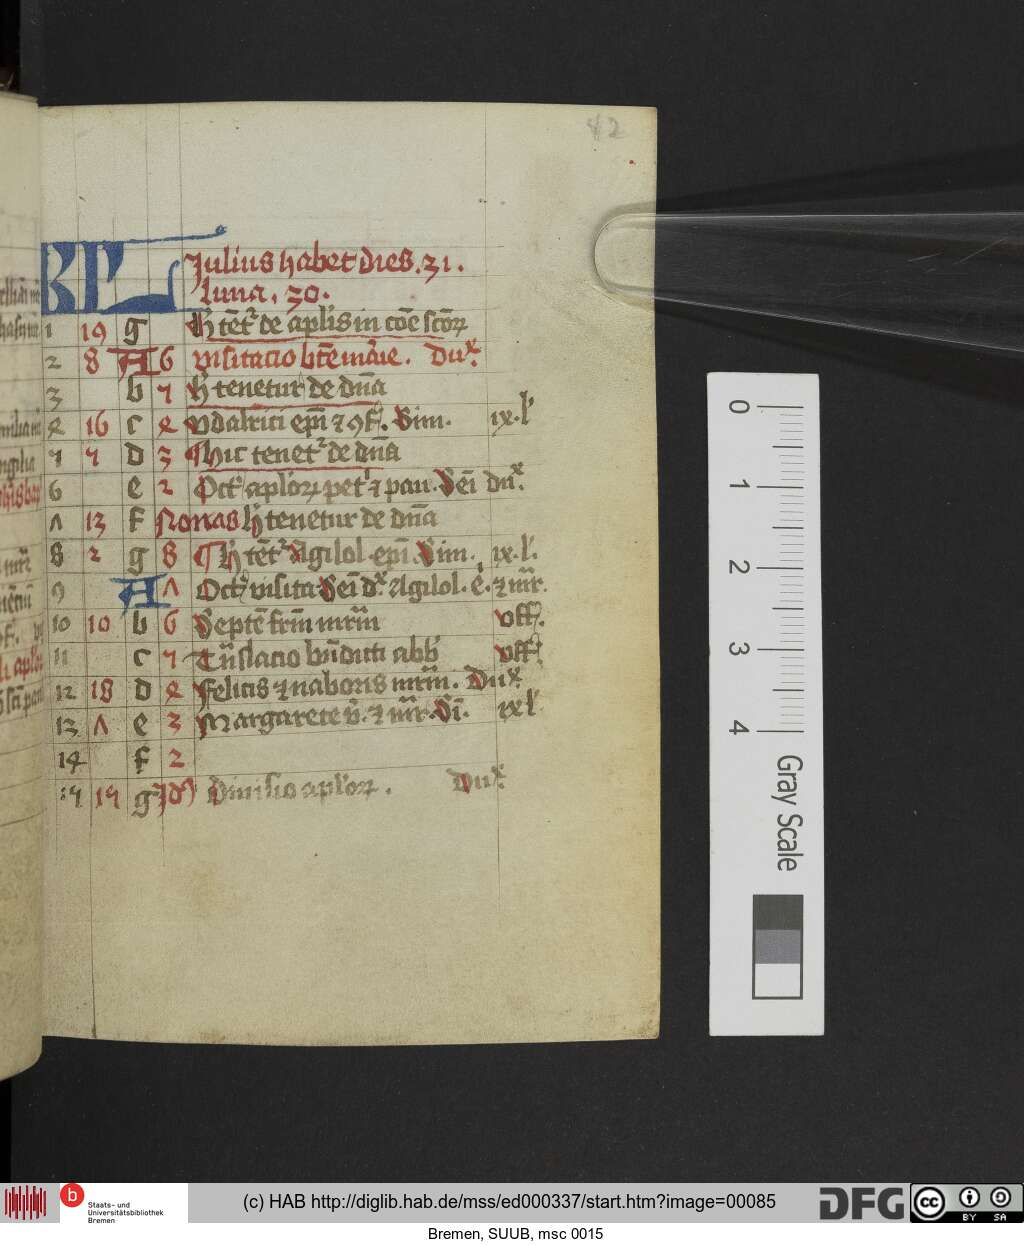 42
KL Julius habet dies. 31.
Luna. 30.
1 19 g h tēt² de aplis in coē scōꝝ
2 8 A 6 visitacio btē marie. Dux
3 b 5 h tenetur de dn̄a
4 16 c 4 vdalrici ep̄i ⁊ 9f. Sim. ix.l'
5 5 d 3 ¶ hic tenet² de dn̄a
6 e 2 Oct' aplorꝝ pet' ⁊ pau. Sci dux.
7 13 f Nonas h tenetur de dn̄a
8 2 g 8 ¶ h tēt² Agilol. ep̄i Sim. ix.l'.
9 A 7 Oct' visita Sci dx Agilol. e. ⁊ mr̄.
10 10 b 6 Septē frm̄ mrm̄ off'.
11 c 5 Tn̄slacio bn̄dicti abb' off'.
12 18 d 4 Felicis ⁊ naboris mrm̄. Dux
13 7 e 3 Margarete v̄. ⁊ mr̄. Sī. ix l'
14 f 2
15 15 g Id' Diuisio aplorꝝ. Dux
0
1
2
3
4
Gray Scale
b Staats- und
Universitätsbibliothek
Bremen
(c) HAB http://diglib.hab.de/mss/ed000337/start.htm?image=00085
DFG
cc BY SA
Bremen, SUUB, msc 0015